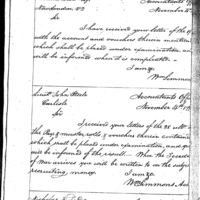 Accountants Off
November
Sir
I have received your letter of the
with the account and vouchers therein mention
which shall be placed under examination an
will be informed when it is completed.
I am &c
Wm Simmons
Lieut John Steele
Carlisle
Accountants Offi
November 4th 179
Sir
I received your letter of the 28 ulto
the Pay & muster rolls & vouchers therein contained
which shall be placed under examination, and you
will be informed of the result — When the Secreta
of War arrives you will be written to on the subje
recruiting money
I am &c
Wm Simmons Acc